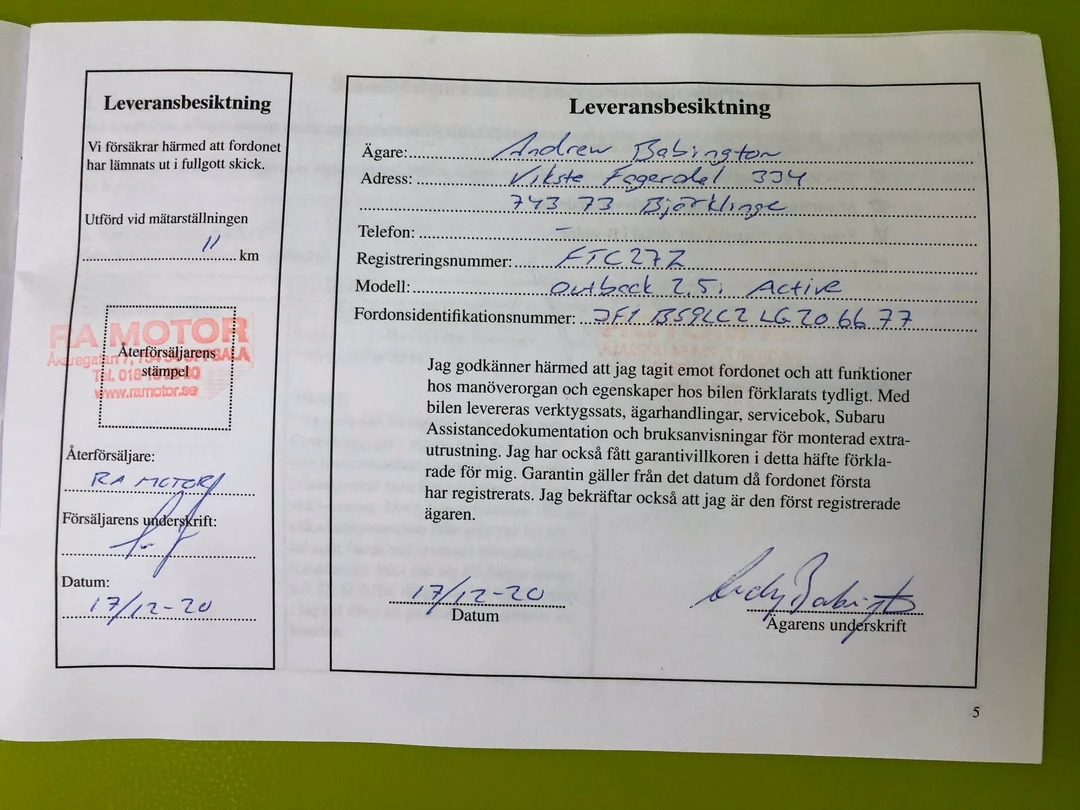 Leveransbesiktning
Vi försäkrar härmed att fordonet
har lämnats ut i fullgott skick.
Utförd vid mätarställningen
11 km
RA MOTOR
Återförsäljarens
stämpel
www.ramotor.se
Återförsäljare:
RA MOTOR
Försäljarens underskrift:
Datum:
17/12-20
Leveransbesiktning
Ägare: Andrew Babington
Adress: Vikste Fagerdal 334
743 73 Björklinge
Telefon: -
Registreringsnummer: FTC27Z
Modell: Outback 2,5i Active
Fordonsidentifikationsnummer: JF1 BS9LC2 LG20 66 77
Jag godkänner härmed att jag tagit emot fordonet och att funktioner
hos manöverorgan och egenskaper hos bilen förklarats tydligt. Med
bilen levereras verktygssats, ägarhandlingar, servicebok, Subaru
Assistancedokumentation och bruksanvisningar för monterad extra-
utrustning. Jag har också fått garantivillkoren i detta häfte förkla-
rade för mig. Garantin gäller från det datum då fordonet första
har registrerats. Jag bekräftar också att jag är den först registrerade
ägaren.
17/12-20
Datum
Ägarens underskrift
5